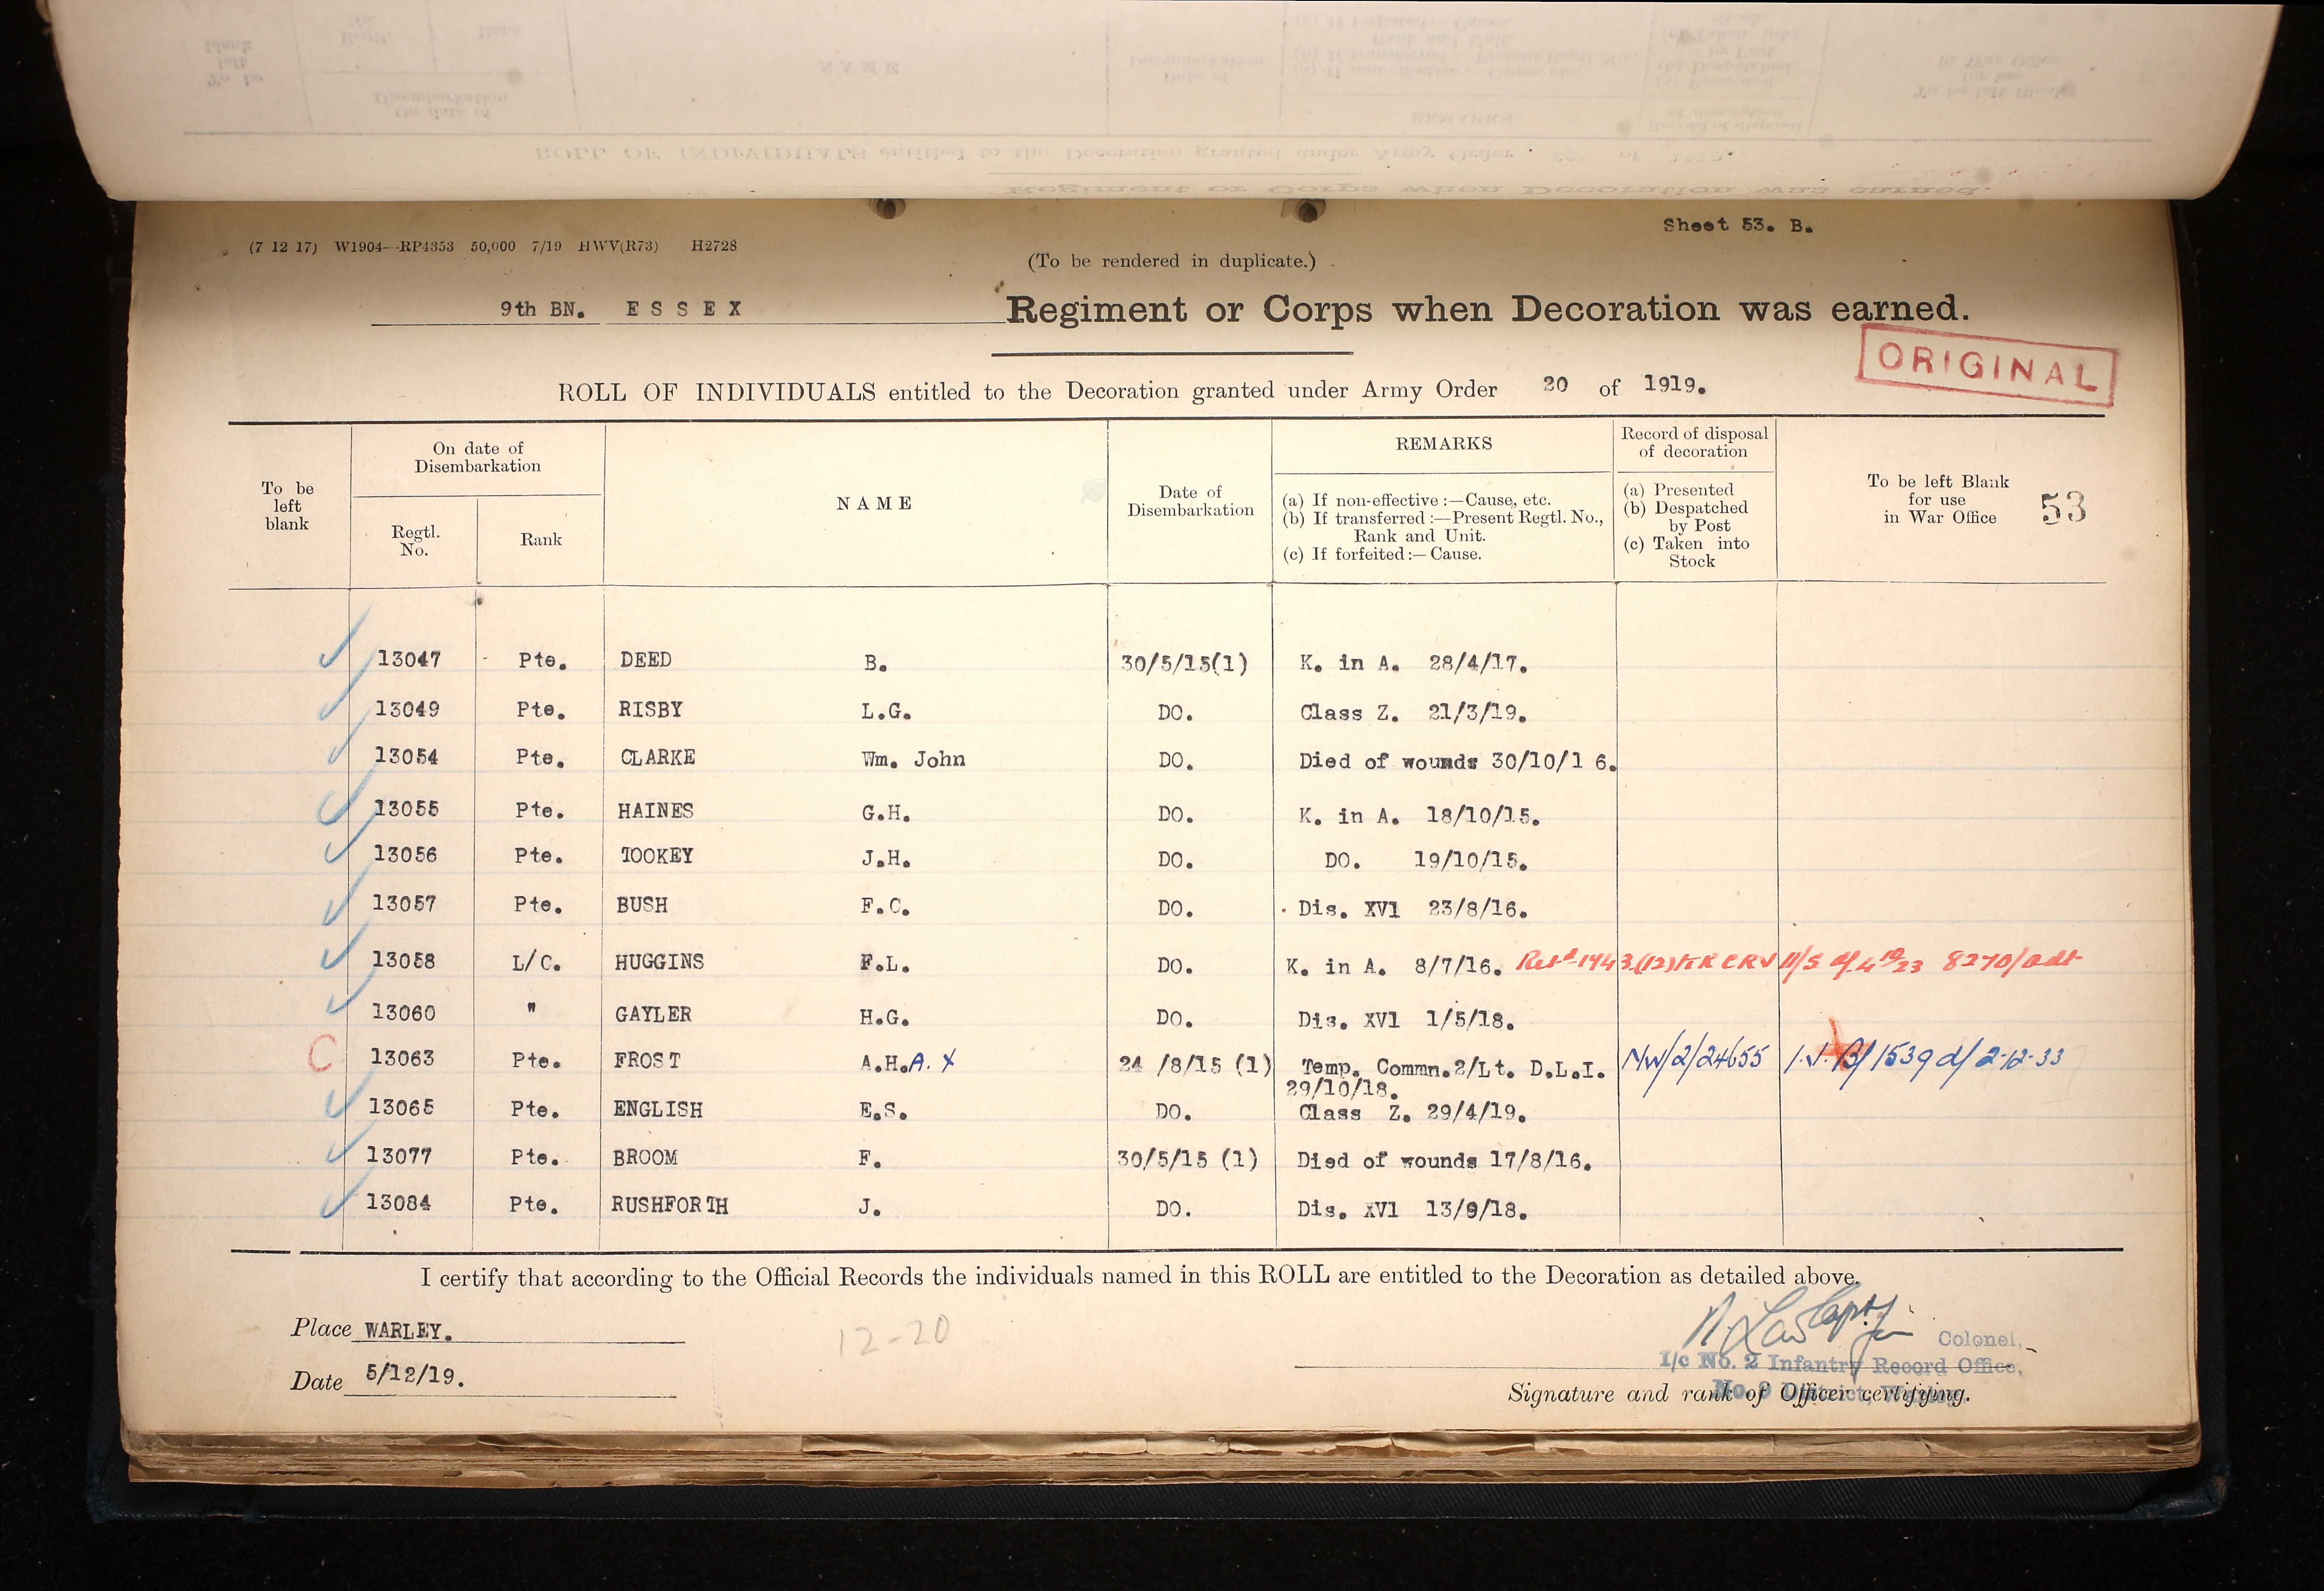 Sheet 53. B.
(7 12 17) W1904—RP4353 50,000 7/19 HWV(R73) H2728
(To be rendered in duplicate.)
9th BN. ESSEX Regiment or Corps when Decoration was earned.
ORIGINAL
ROLL OF INDIVIDUALS entitled to the Decoration granted under Army Order 20 of 1919.
To be left blank
On date of Disembarkation
Regtl. No.
Rank
NAME
Date of Disembarkation
REMARKS
(a) If non-effective:—Cause, etc.
(b) If transferred:—Present Regtl. No., Rank and Unit.
(c) If forfeited:—Cause.
Record of disposal of decoration
(a) Presented
(b) Despatched by Post
(c) Taken into Stock
To be left Blank for use in War Office
53
13047 Pte. DEED B. 30/5/15(1) K. in A. 28/4/17.
13049 Pte. RISBY L.G. DO. Class Z. 21/3/19.
13054 Pte. CLARKE Wm. John DO. Died of wounds 30/10/1 6.
13055 Pte. HAINES G.H. DO. K. in A. 18/10/15.
13056 Pte. TOOKEY J.H. DO. DO. 19/10/15.
13057 Pte. BUSH F.C. DO. Dis. XV1 23/8/16.
13058 L/C. HUGGINS F.L. DO. K. in A. 8/7/16. 8270/Adt
13060 " GAYLER H.G. DO. Dis. XV1 1/5/18.
C 13063 Pte. FROST A.H.A. X 24 /8/15 (1) Temp. Commn.2/Lt. D.L.I. NW/2/24655 1539 d/ 2-12-33
29/10/18.
13065 Pte. ENGLISH E.S. DO. Class Z. 29/4/19.
13077 Pte. BROOM F. 30/5/15 (1) Died of wounds 17/8/16.
13084 Pte. RUSHFORTH J. DO. Dis. XV1 13/9/18.
I certify that according to the Official Records the individuals named in this ROLL are entitled to the Decoration as detailed above.
Place WARLEY.
12-20
Colonel,
I/c No. 2 Infantry Record Office,
Date 5/12/19.
Signature and rank of Officer certifying.